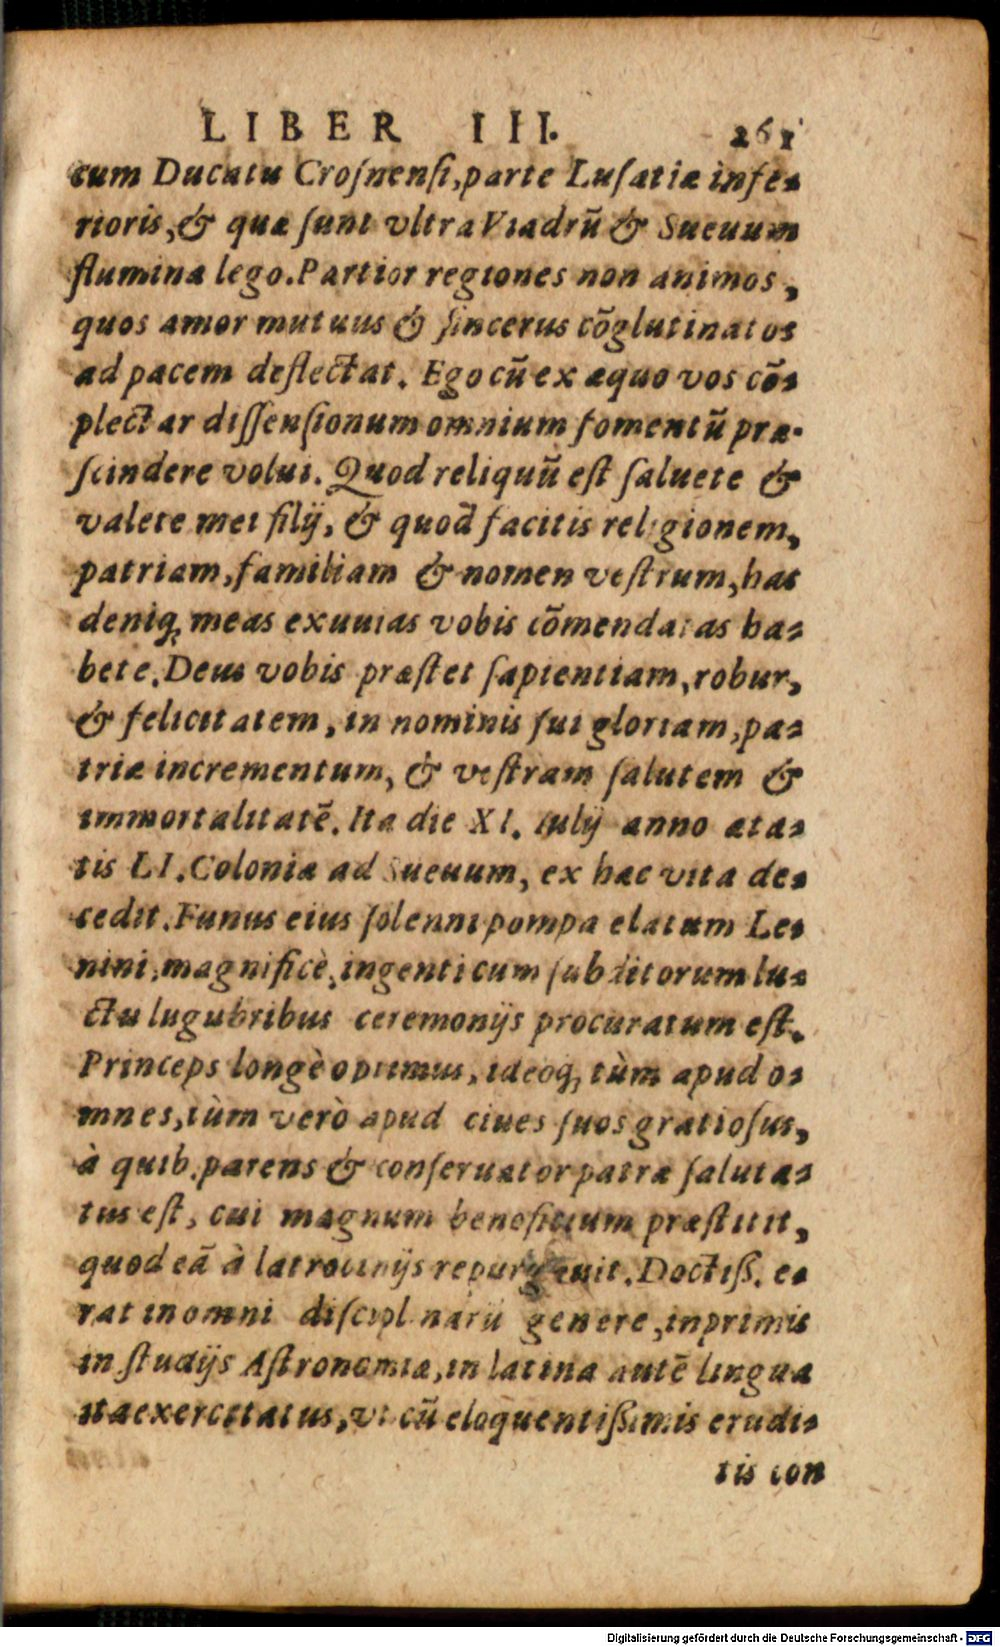 LIBER III. 261
cum Ducatu Croſnenſi, parte Luſatiæ infe-
rioris, & quæ ſunt vltra Viadrũ & Sueuum
flumina lego. Partior regiones non animos,
quos amor mutuus & ſincerus cõglutinatos
ad pacem deflectat. Ego cũ ex æquo vos cõ-
plectar diſſenſionum omnium fomentũ præ-
ſcindere volui. Quod reliquũ eſt ſaluete &
valete mei filij, & quod facitis religionem,
patriam, familiam & nomen veſtrum, has
deniq; meas exuuias vobis cõmendatas ha-
bete. Deus vobis præſtet ſapientiam, robur,
& felicitatem, in nominis ſui gloriam, pa-
triæ incrementum, & veſtram ſalutem &
immortalitatẽ. Ita die XI. Iulij anno æta-
tis LI. Coloniæ ad Sueuum, ex hac vita de-
cedit. Funus eius ſolenni pompa elatum Le-
nini, magnificè, ingenti cum ſubditorum lu-
ctu lugubribus ceremonijs procuratum eſt.
Princeps longè optimus, ideoq; tùm apud o-
mnes, tùm verò apud ciues ſuos gratioſus,
à quib. parens & conſeruator patræ ſaluta-
tus eſt, cui magnum beneficium præſtitit,
quod eã à latrocinijs repurgauit. Doctiß. e-
rat in omni diſciplinarũ genere, inprimis
in ſtudijs Aſtronomia, in latina autẽ lingua
ita exercitatus, vt cũ eloquentißimis erudi-
tis con
Digitalisierung gefördert durch die Deutsche Forschungsgemeinschaft - DFG